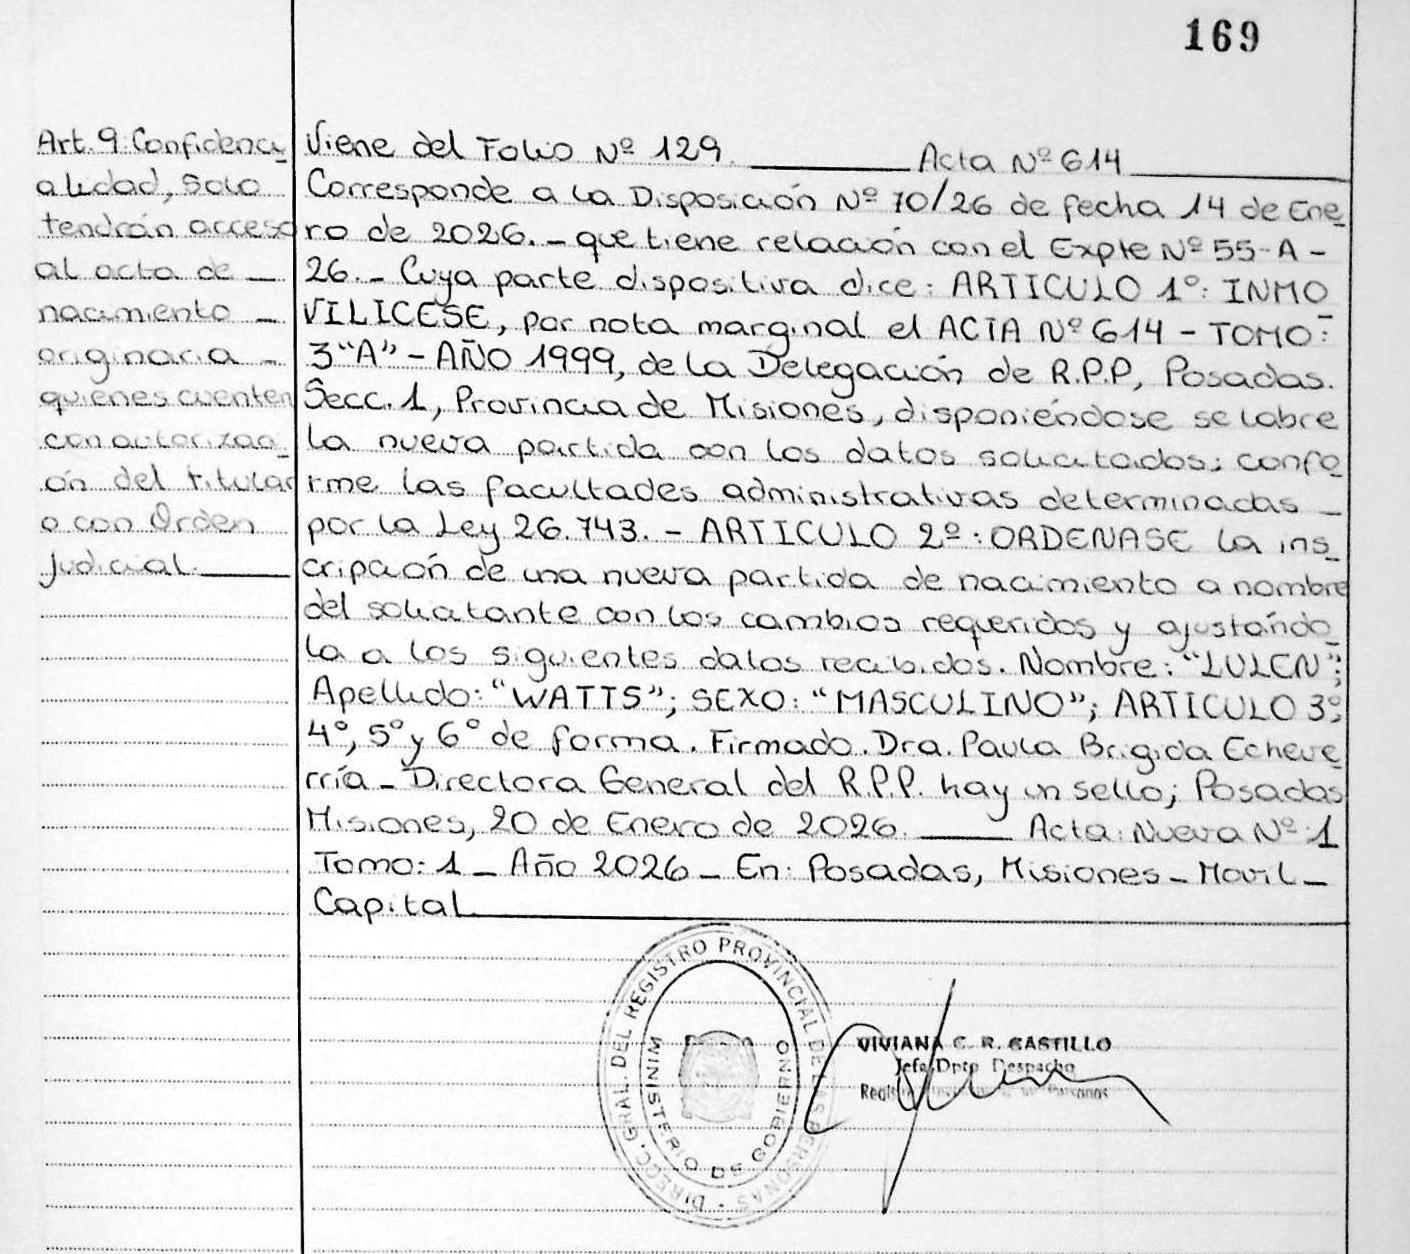 169
Art. 9: Confidenci_
alidad, Solo
tendrán acceso
al acta de _
nacimiento _
originaria _
quienes cuenten
con autorizac_
ón del titular
o con Orden
Judicial.
Viene del Folio Nº 129. Acta Nº 614
Corresponde a la Disposición Nº 70/26 de fecha 14 de Ene_
ro de 2026. _ que tiene relación con el Expte Nº 55-A-
26. _ Cuya parte dispositiva dice: ARTICULO 1º: INMO_
VILICESE, por nota marginal el ACTA Nº 614 - TOMO:
3 "A" - AÑO 1999, de la Delegación de R.P.P, Posadas.
Secc. 1, Provincia de Misiones, disponiéndose se labre
la nueva partida con los datos solicitados; confo_
rme las facultades administrativas determinadas _
por la Ley 26.743. - ARTICULO 2º: ORDENASE la ins_
cripción de una nueva partida de nacimiento a nombre
del solicitante con los cambios requeridos y ajustándo_
la a los siguientes datos recibidos. Nombre: "LULEN";
Apellido: "WATTS"; SEXO: "MASCULINO"; ARTICULO 3º;
4º, 5º y 6º de forma. Firmado. Dra. Paula Brigida Echeve_
rría _ Directora General del R.P.P. hay un sello; Posadas
Misiones, 20 de Enero de 2026. Acta: Nueva Nº: 1
Tomo: 1 _ Año 2026 _ En: Posadas, Misiones _ Movil _
Capital
DIRECC. GRAL. DEL REGISTRO PROVINCIAL DE LAS PERSONAS
MINISTERIO DE GOBIERNO
VIVIANA C. R. CASTILLO
Jefa Dpto Despacho
Personas